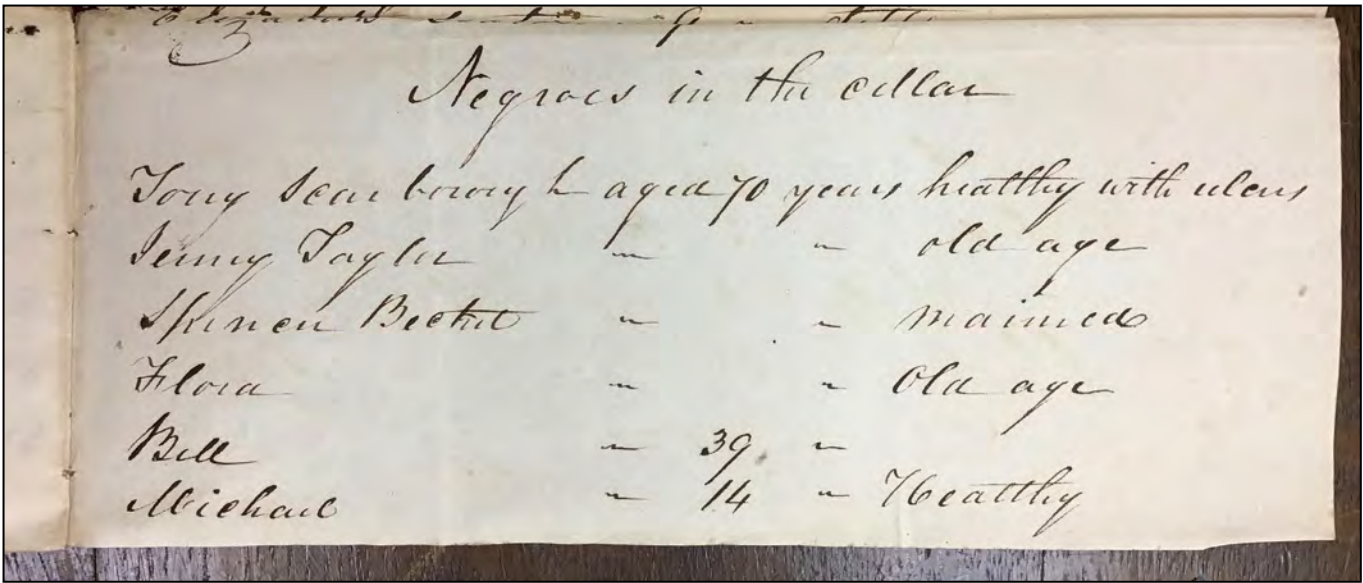 Negroes in the cellar
Tony Scarborough aged 70 years healthy with ulcers
Jenny Taylor " " old age
Spencer Becket " " maimed
Flora " " Old age
Bill " 39 "
Michael " 14 " Healthy